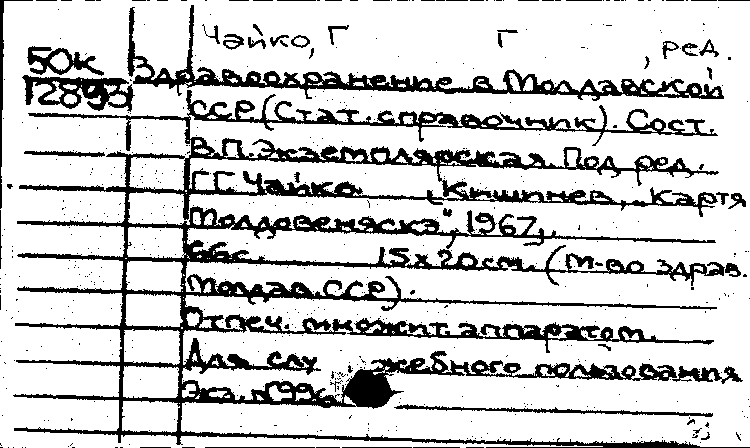 Чайко, Г Г , ред.
50к Здравоохранение в Молдавской
12893 ССР. (Стат. справочник). Сост.
В.П. Экземплярская. Под ред.
Г.Г. Чайко. Кишинев, „Картя
Молдовеняскэ", 1967,.
66с. 15х20см. (М-во здрав.
Молдав. ССР).
Отпеч. множит. аппаратом.
Для слу жебного пользования
Экз. №